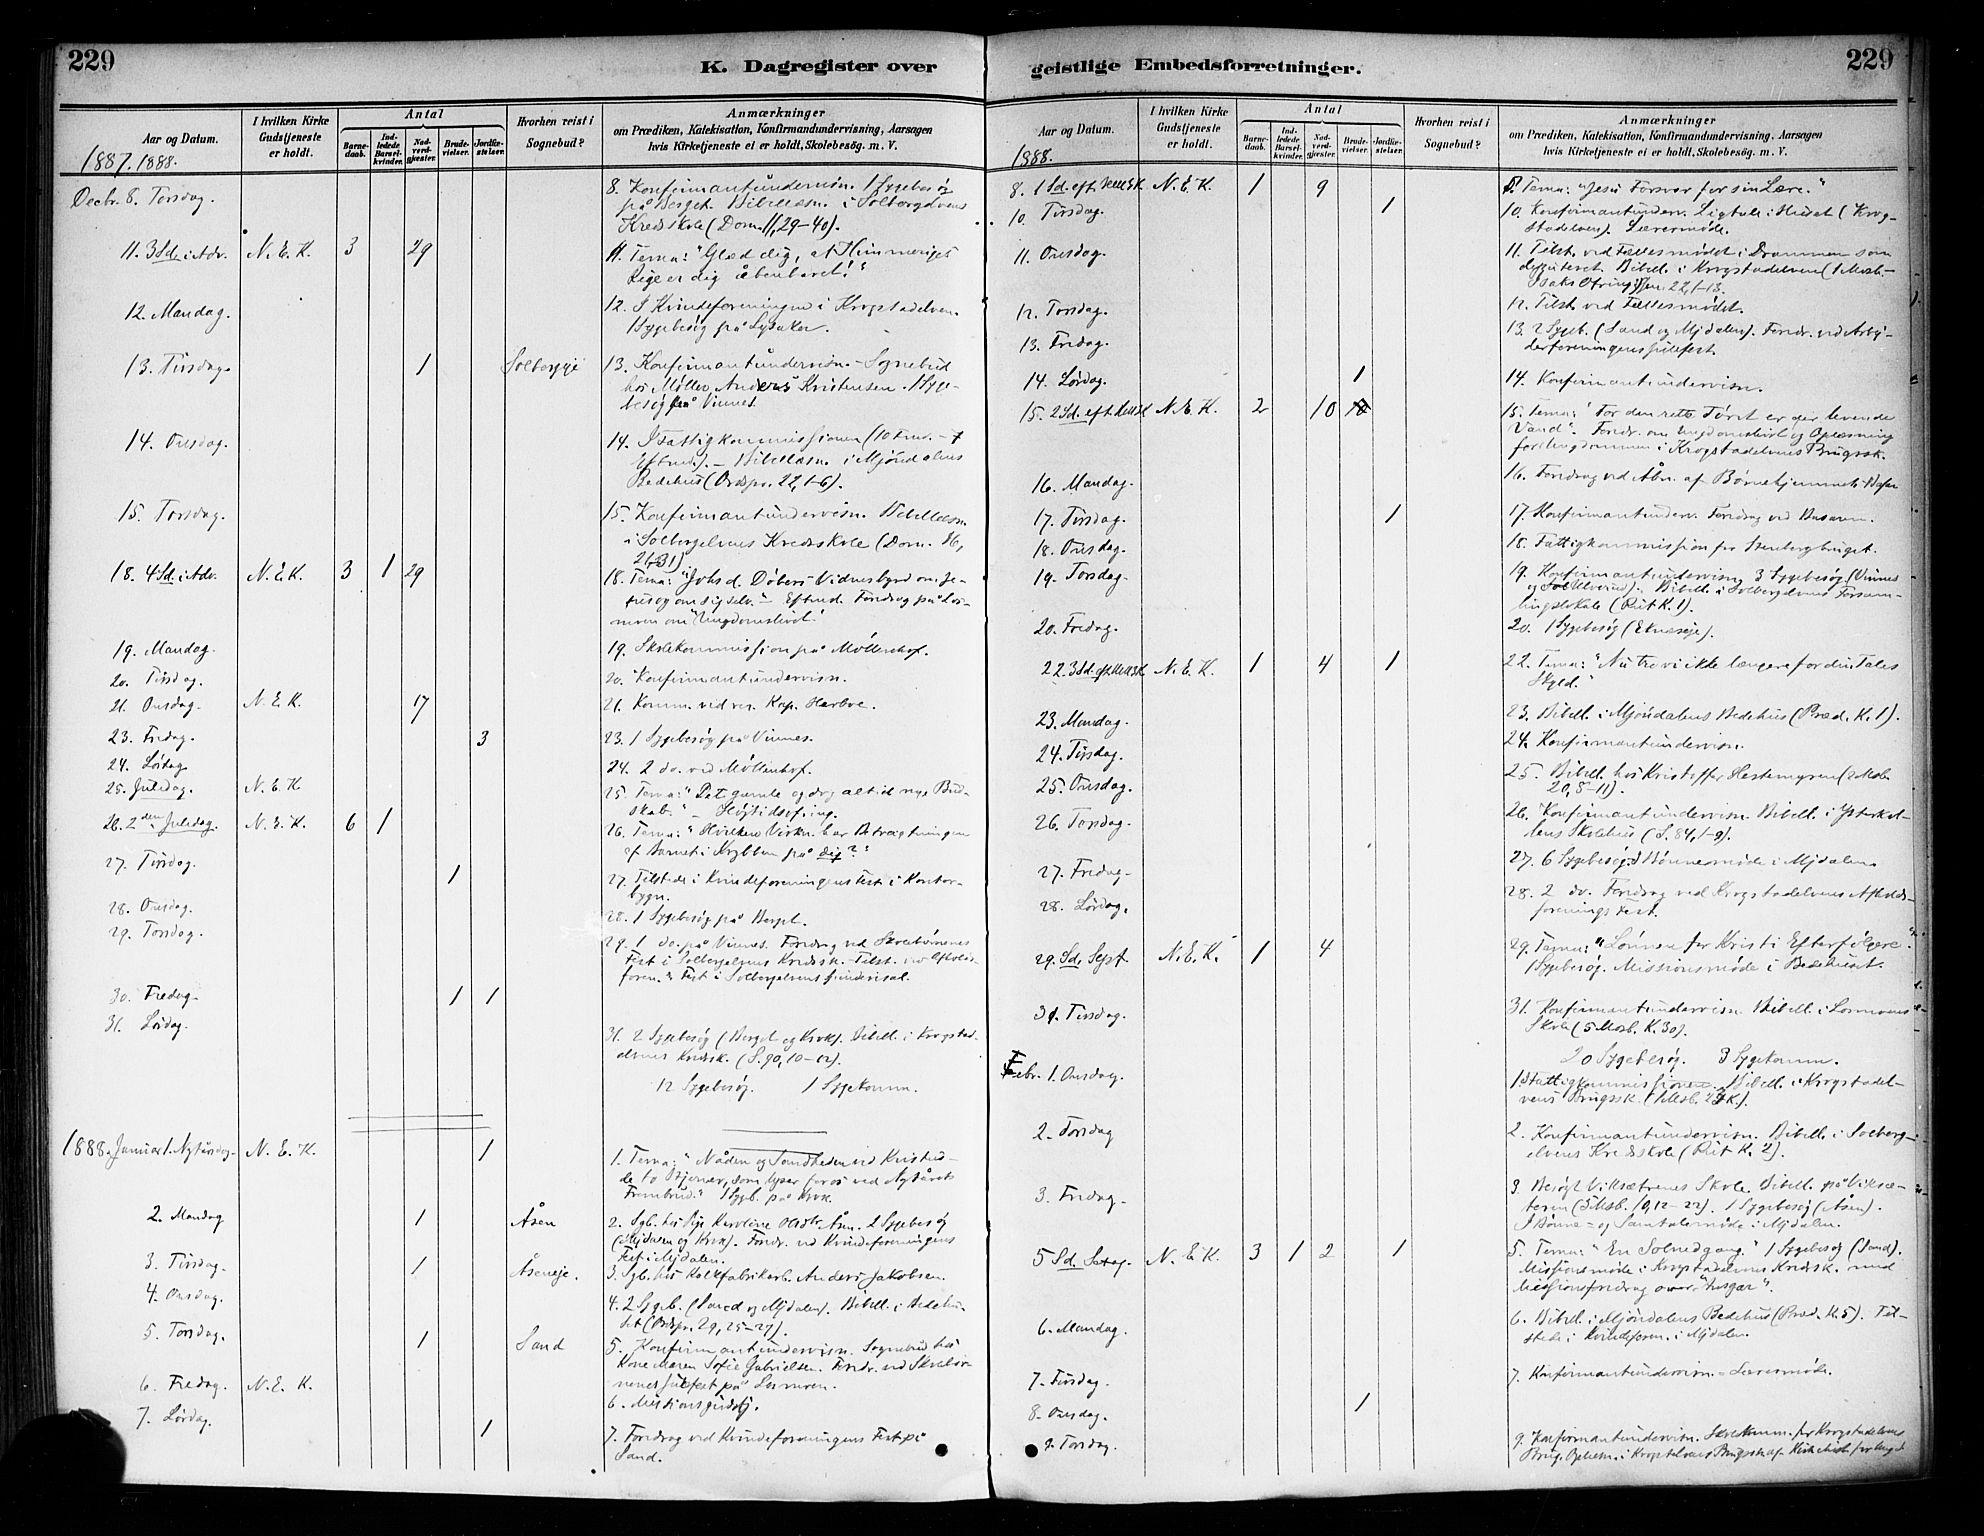 229
K. Dagregister over
Aar og Datum.
1887. 1888.
I hvilken Kirke Gudstjeneste er holdt.
Antal
Barnedaab.
Indledede Barselkvinder.
Nadverdgjester.
Brudevielser.
Jordfæstelser.
Hvorhen reist i Sognebud?
Anmærkninger
om Prædiken, Katekisation, Konfirmandundervisning, Aarsagen
hvis Kirketjeneste ei er holdt, Skolebesøg. m. V.
Decbr. 8. Torsdag. 8. Konfirmantundervisn. 1 Sygebesög
på Berget. Bibellæsn. i Solbergelvens
Kredsskole (Dom. 11, 29-40).
11. 3 Sd. i Adv. N. E. K. 3 29 11. Tema: "Glæd dig, at Himmeriges
Rige er dig åbenbaret!"
12. Mandag. 12. I Kvindeforeningen i Krogstadelven.
1 Sygebesög på Lysaker.
13. Tirsdag. 1 Solbergeje 13. Konfirmantundervisn. - Sognebud
hos Møller Anders Kristensen. 1 Syge-
besög på Vinnes.
14. Onsdag. 14. I Fattigkommissionen (10 Fmd. - 7
Eftmd.). - Bibellæsn. i Mjöndalens
Bedehus (Ordspr. 22, 1-6).
15. Torsdag. 15. Konfirmantundervisn. Bibellæsn.
i Solbergelvens Kredsskole (Dom. 16,
21-31)
18. 4 Sd. i Adv. N. E. K. 3 1 29 18. Tema: "Johs d. Døbers Vidnesbyrd om Je-
sus og om sig selv." - Eftmd. Foredrag på Los-
moen om "Ungdomslivet."
19. Mandag. 19. Skolekommission på Möllenhof.
20. Tirsdag. 20. Konfirmantundervisn.
21. Onsdag. N. E. K. 17 21. Komm. ved res. Kap. Harboe.
23. Fredag. 3 23. 1 Sygebesög på Vinnes.
24. Lördag 24. 2 do. ved Möllenhof.
25. Juledag. N. E. K 25. Tema: "Det gamle og dog altid nye Bud-
skab." - Höjtidsofring.
26. 2den Juledag. N. E. K. 6 1 26. Tema: "Hvilken Virkn. har Betragtningen
af Barnet i Krybben på dig?"
27. Tirsdag. 1 27. Tilstede i Kvindeforeningens Fest i Kontor-
bygn.
28. Onsdag. 28. 1 Sygebesög på Berget.
29. Torsdag. 29. 1 do. på Vinnes. Foredrag ved Skolebörnenes
Fest i Solbergelvens Kredssk. - Tilst. ved Afholds-
foren.s Fest i Solbergelvens
30. Fredag. 1 1
31. Lördag. 31. 2 Sygebesög (Berget og Krok). Bibell. i Krogstad-
elvens Kredssk. (S. 90, 10-12).
12 Sygebesög. 1 Sygekomm.
1888. Januar 1. Nytårsdag. N. E. K. 1 1. Tema: "Nåden og Sandheden ved Kristus -
de to Stjerner, som lyser for os ved Nytårets
Frembrud." 1 Sygb. på Krok.
2. Mandag 1 Åsen 2. Sgb. hos Pige Karoline Olsdtr. Åsen. 2 Sygebesög
(Mjdalen og Krok). Foredr. ved Kvindeforeningens
Fest i Mjdalen.
3. Tirsdag. 1 Åseneje. 3. Sgb. hos Kalkfabrikarb. Anders Jakobsen.
4. Onsdag. 4. 2 Sygeb. (Sand og Mjdalen). Bibell. i Bedehu-
set (Ordspr. 29, 25-27).
5. Torsdag. 1 Sand 5. Konfirmantundervisn. Sognebud hos
Kone Maren Sofie Gabrielsen. Foredr. ved Skolebör-
nenes Julefest på Losmoen.
6. Fredag. N. E. K. 6. Missionsgudstj.
7. Lördag. 1 7. Foredrag ved Kvindeforeningens Fest på
Sand.
geistlige Embedsforretninger.
229
Aar og Datum.
1888.
I hvilken Kirke Gudstjeneste er holdt.
Antal
Barnedaab.
Indledede Barselkvinder.
Nadverdgjester.
Brudevielser.
Jordfæstelser.
Hvorhen reist i Sognebud?
Anmærkninger
om Prædiken, Katekisation, Konfirmandundervisning, Aarsagen
hvis Kirketjeneste ei er holdt, Skolebesøg. m. V.
8. 1 Sd. eft. Hell3K N. E. K. 1 9 8. Tema: "Jesu Forsvar for sin Lære."
10. Tirsdag. 1 10. Konfirmantunderv. Ligtale i Huset (Krog-
stadelven). Lærermöde.
11. Onsdag. 11. Tilst. ved Fællesmödet i Drammen som
deputeret. Bibell. i Krogstadelven (1 Mosb.
Isaks Ofring 22, 1-13.
12. Torsdag. 12. Tilst. ved Fællesmödet.
13. Fredag. 13. 2 Sygeb. (Sand og Mjdalen). Foredr. ved Arbej-
derforeningens Julefest.
14. Lördag. 1 14. Konfirmantundervisn.
15. 2 Sd. eft. Hell3K N. E. K. 2 10 15. Tema: "For den rette Törst er der levende
Vand". Foredr. om Ungdomslivet og Oplæsning
for Ungdommen i Krogstadelvens Brugssk.
16. Mandag. 16. Foredrag ved Åbn. af Børnehjemmets Basar
17. Tirsdag. 1 17. Konfirmantunderv. Foredrag ved Basaren.
18. Onsdag. 18. Fattigkommission for Stenbergbruget.
19. Torsdag. 19. Konfirmantundervisn. 3 Sygebesög (Vinnes
og Solbergelven). Bibell. i Solbergelvens Forsam-
lingslokale (Rut K. 1).
20. Fredag. 20. 1 Sygebesög (Eknæseje).
22. 3 Sd. eft. Hell3K N. E. K. 1 4 1 22. Tema: "Nu tro vi ikke længere for din Tales
Skyld."
23. Mandag. 23. Bibell. i Mjöndalens Bedehus (Præd. K. 1).
24. Tirsdag. 24. Konfirmantundervisn.
25. Onsdag. 25. Bibell. hos Kristoffer Hestemyren (2 Mosb.
20, 8-11).
26. Torsdag. 26. Konfirmantundervisn. Bibell. i Ysterkol-
lens Skolehus (S. 84, 1-9).
27. Fredag. 27. 6 Sygebesög. Bönnemöde i Mjdalen
28. Lördag. 28. 2 do. Foredrag ved Krogstadelvens Afholds-
forenings Fest.
29. Sd. Sept. N. E. K. 1 4 29. Tema: "Lönnen for Kristi Efterfölgere".
1 Sygebesög. Missionsmöde i Bedehuset.
31. Tirsdag. 31. Konfirmantundervisn. Bibell. i Losmoens
Skole (5 Mosb. K. 30).
20 Sygebesög. 3 Sygekomm.
Febr. 1. Onsdag. 1. Fattigkommissionen. Bibell. i Krogstadel-
vens Brugssk.
2. Torsdag 2. Konfirmantundervisn. Bibell. i Solberg-
elvens Kredsskole (Rut K. 2).
3. Fredag. 3. Besögt Viksætrenes Skole. Bibell. på Viksæ-
teren (5 Mosb. 10, 12-22). 1 Sygebesög (Åsen).
I Bönne- og Samtalemöde i Mjdalen.
5 Sd. Sexag. N. E. K. 3 1 2 1 5. Tema: "En Solnedgang." 1 Sygebesög (Sand).
Missionsmöde i Krogstadelvens Kredssk. med
Missionsforedrag over
6. Mandag. 6. Bibell. i Mjöndalens Bedehus (Præd. K. 5). Til-
stede i Kvindeforen. i Mjdalen.
7. Tirsdag. 7. Konfirmantundervisn. - Lærermöde.
8. Onsdag. 1
9. Torsdag. 9. Konfirmantundervisn. Skolekomm. for Krogstadelvens
Brug. i Krogstadelvens Brugssk.